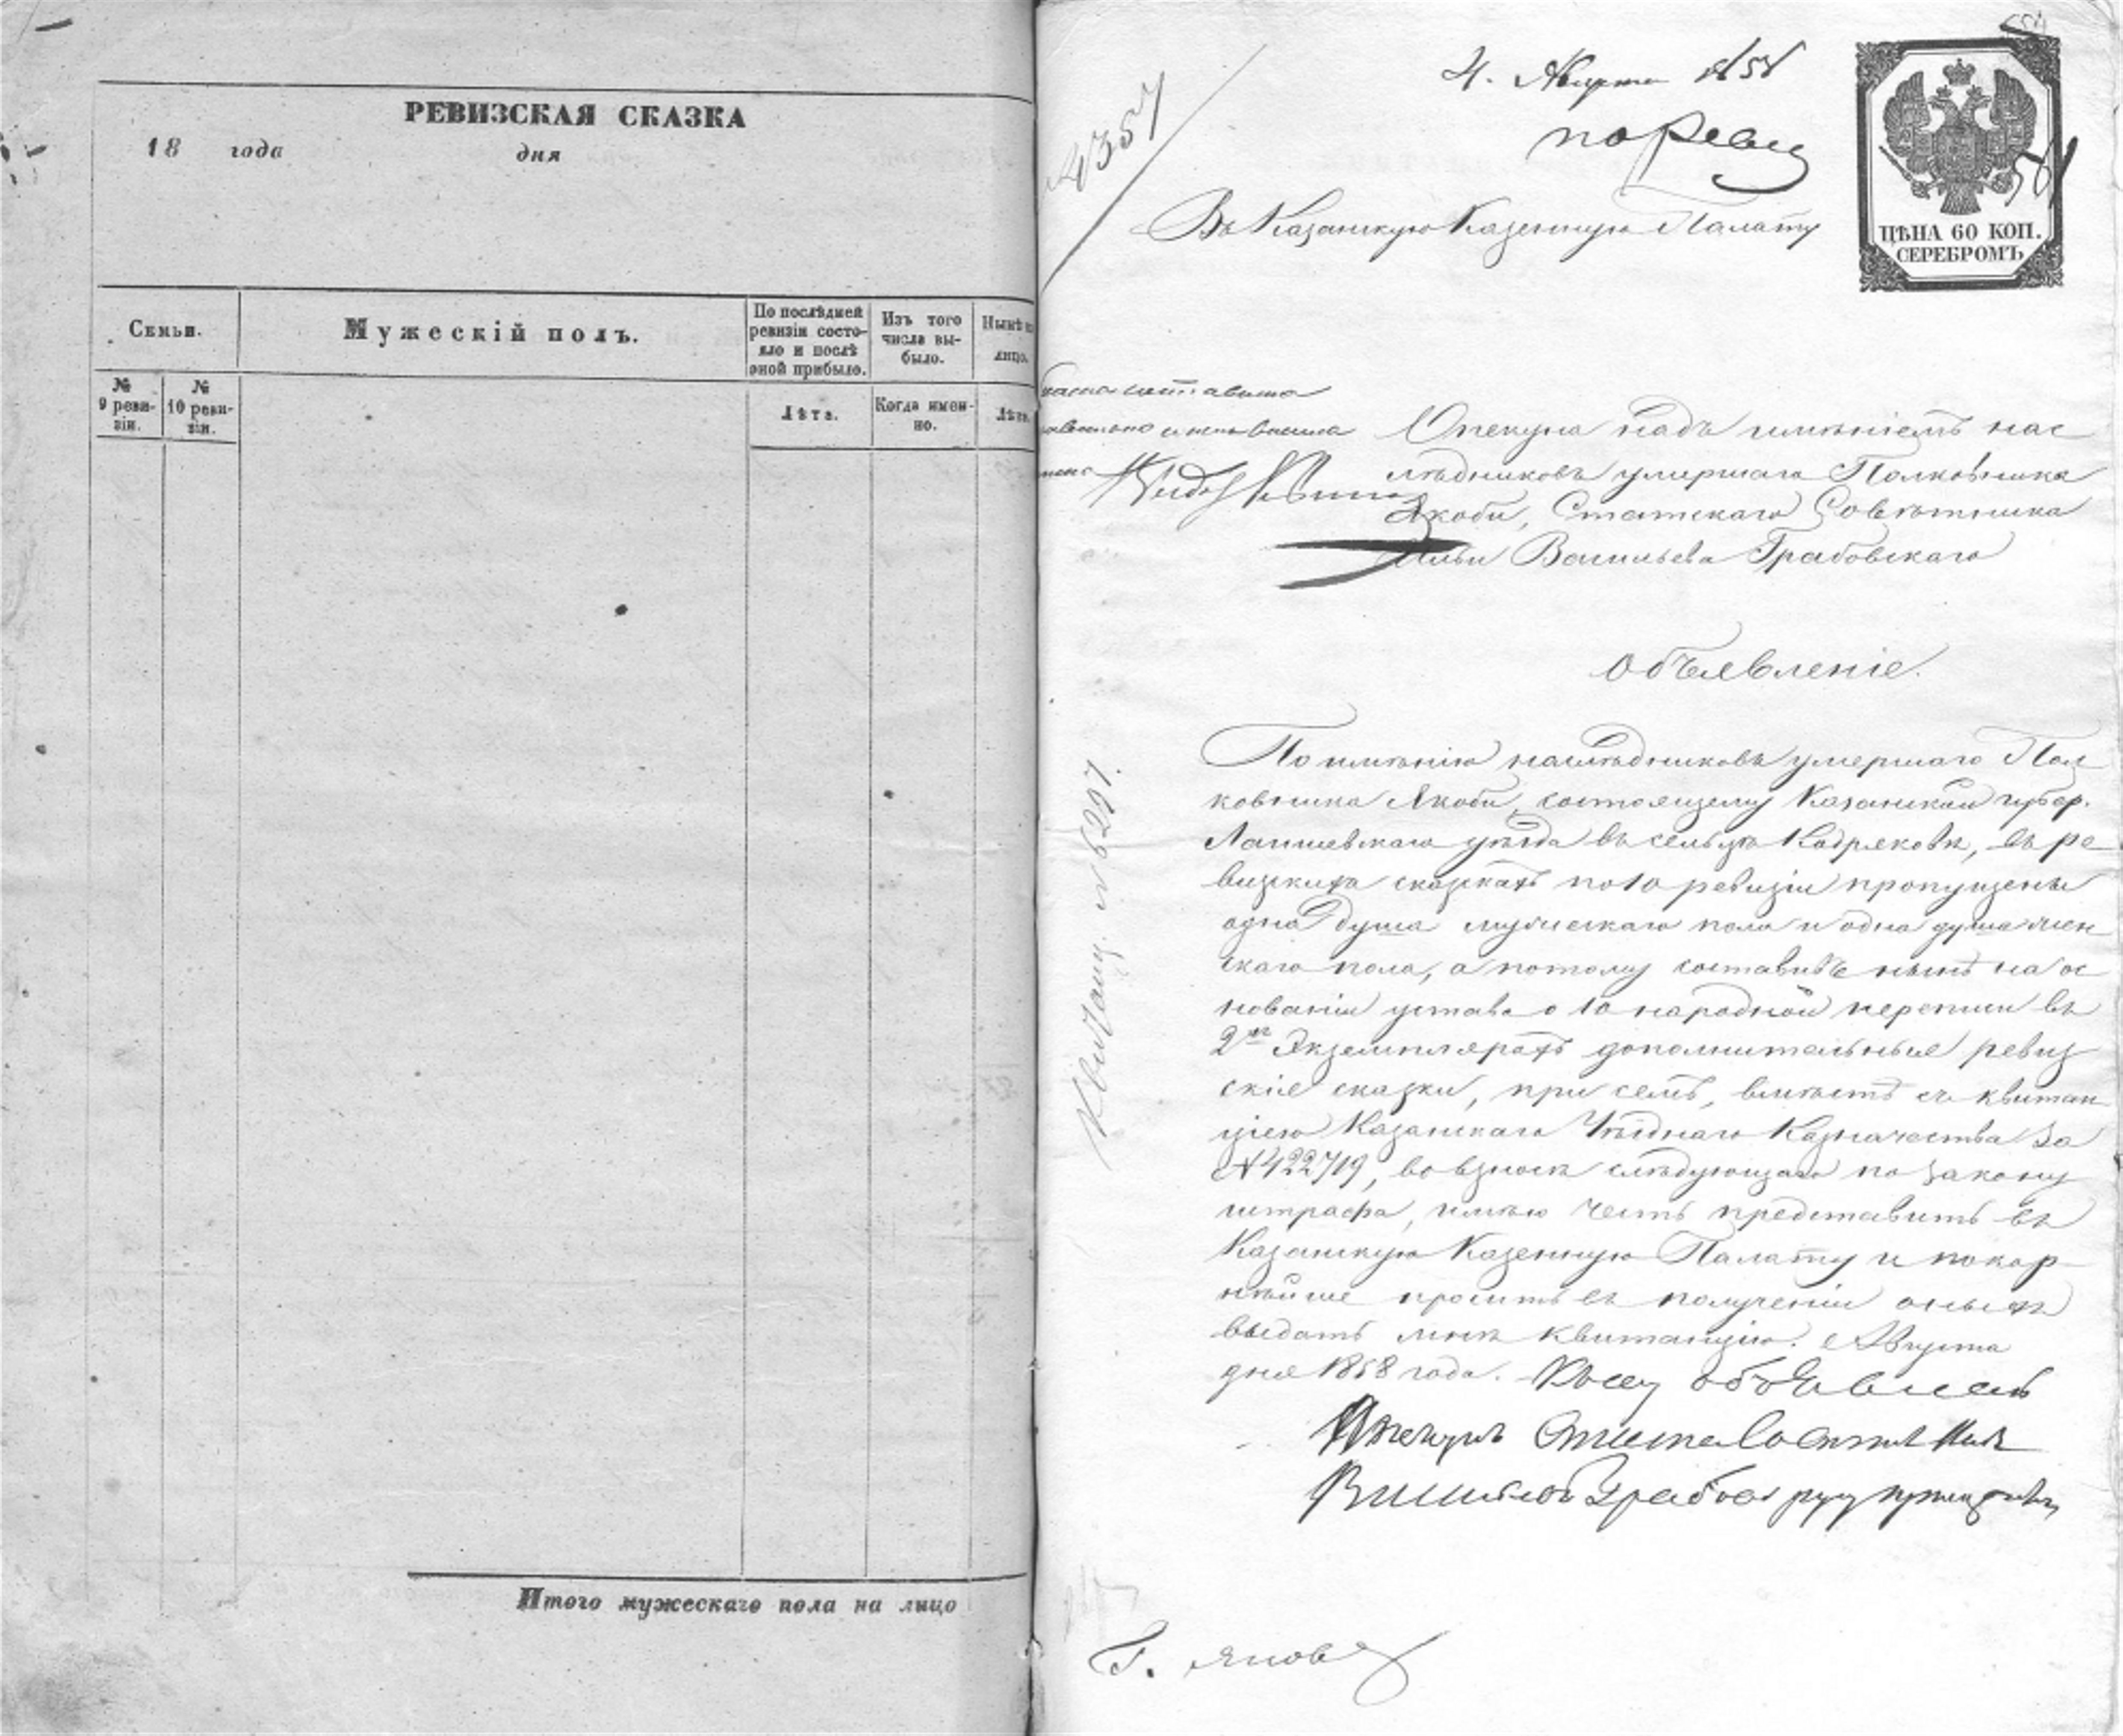 РЕВИЗСКАЯ СКАЗКА
18 года дня
Семьи.
Мужескій полъ.
По послѣдней ревизіи состо-
яло и послѣ
оной прибыло.
Изъ того
числа вы-
было.
Нынѣ на
лицо.
№
9 реви-
зіи.
№
10 реви-
зіи.
Лѣта.
Когда имен-
но.
Лѣта.
Итого мужескаго пола на лицо
4. Августа 1858
по Реви
4357
ЦѢНА 60 КОП.
СЕРЕБРОМЪ
Въ Казанскую Казенную Палату
Опекуна надъ имѣніемъ нас
лѣдниковъ умершаго Полковника
Якоби, Статскаго Совѣтника
Васильева Грабовскаго
Объявленіе.
По имѣнію наслѣдниковъ умершаго Пол
ковника Якоби, состоящему Казанской губер.
Лаишевскаго уѣзда въ сельцѣ Кадряковѣ, въ ре
визскихъ сказкахъ по 10 ревизіи пропущены
одна душа мужескаго пола и одна душа жен
скаго пола, а потому составивъ нынѣ на ос
нованіи устава о 10 народной переписи въ
2хъ Экземплярахъ дополнительные ревиз
скіе сказки, при семъ, вмѣстѣ съ квитан
ціею Казанскаго Уѣзднаго Казначества за
№ 422719, во взносѣ слѣдующаго по закону
штрафа, имѣю честь представить въ
Казанскую Казенную Палату и покор
нѣйше просить въ полученіи оныхъ
выдать мнѣ квитанцію. Августа
дня 1858 года. Къ сему объявленію
Опекунъ Статской Советникъ
Грабовской руку приложилъ
Квитанц. № 6297.
Г. Янов